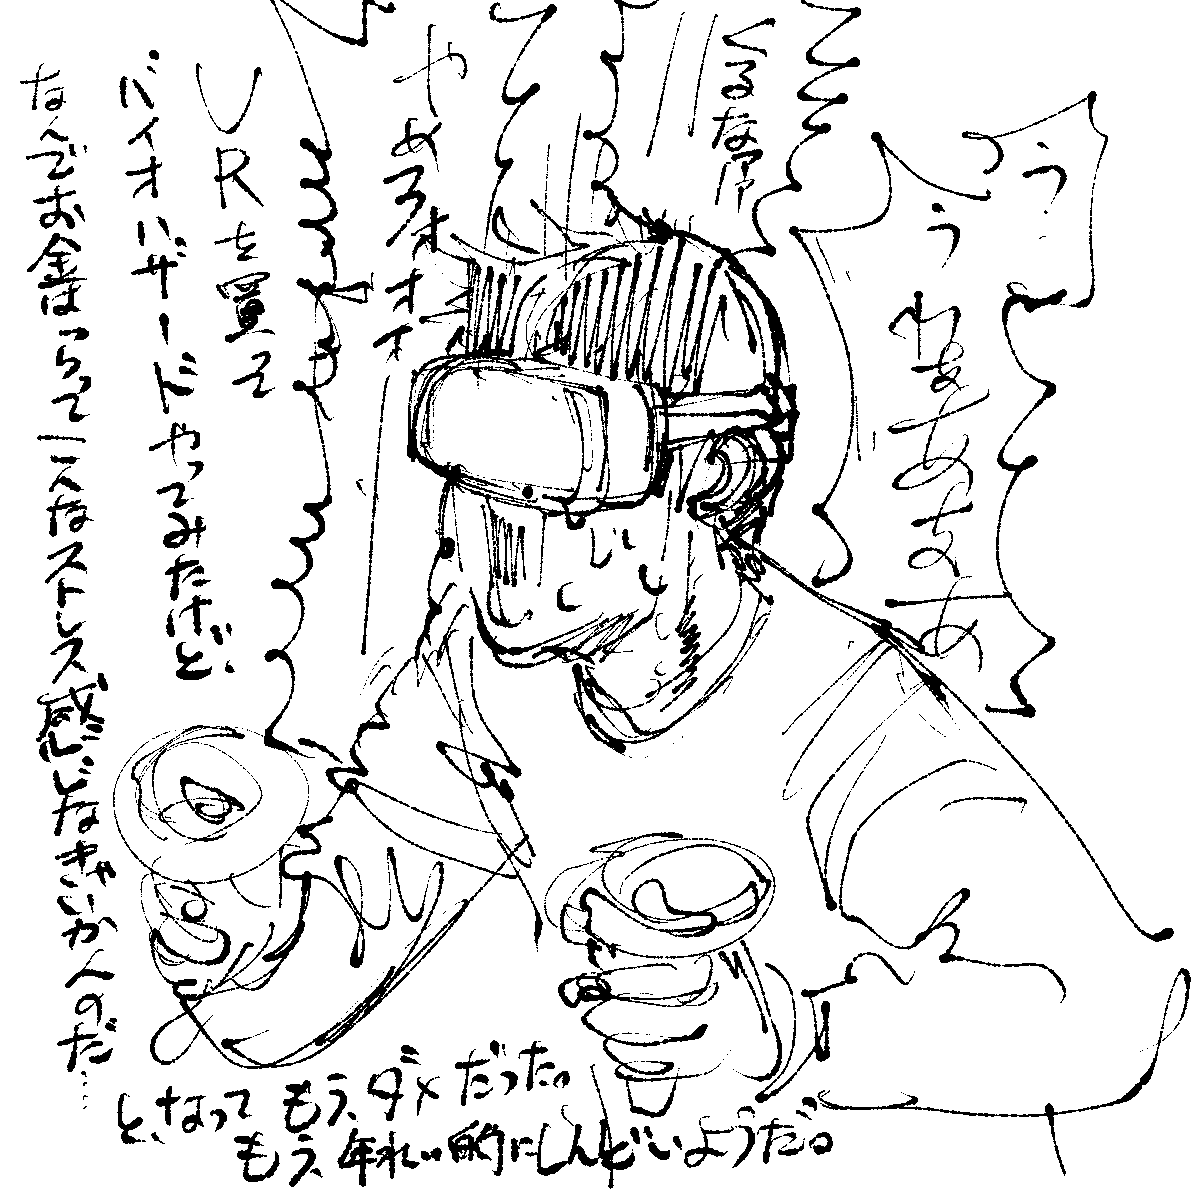 うう
わああああ
くるなァァ
やめろォォオオ
VRを買って
バイオハザードやってみたけど、
なんでお金はらってこんなストレス感じなきゃいかんのだ…
と、なってもう、ダメだった。
もう、年れい的にしんどいようだ。